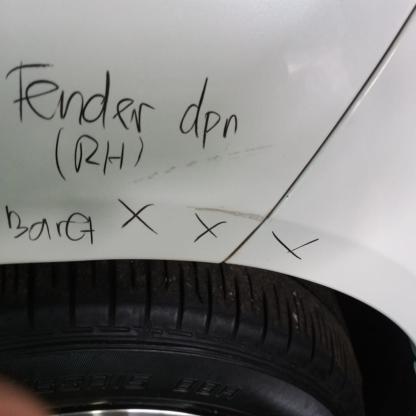 Fender dpn
(RH)
Baret X X X